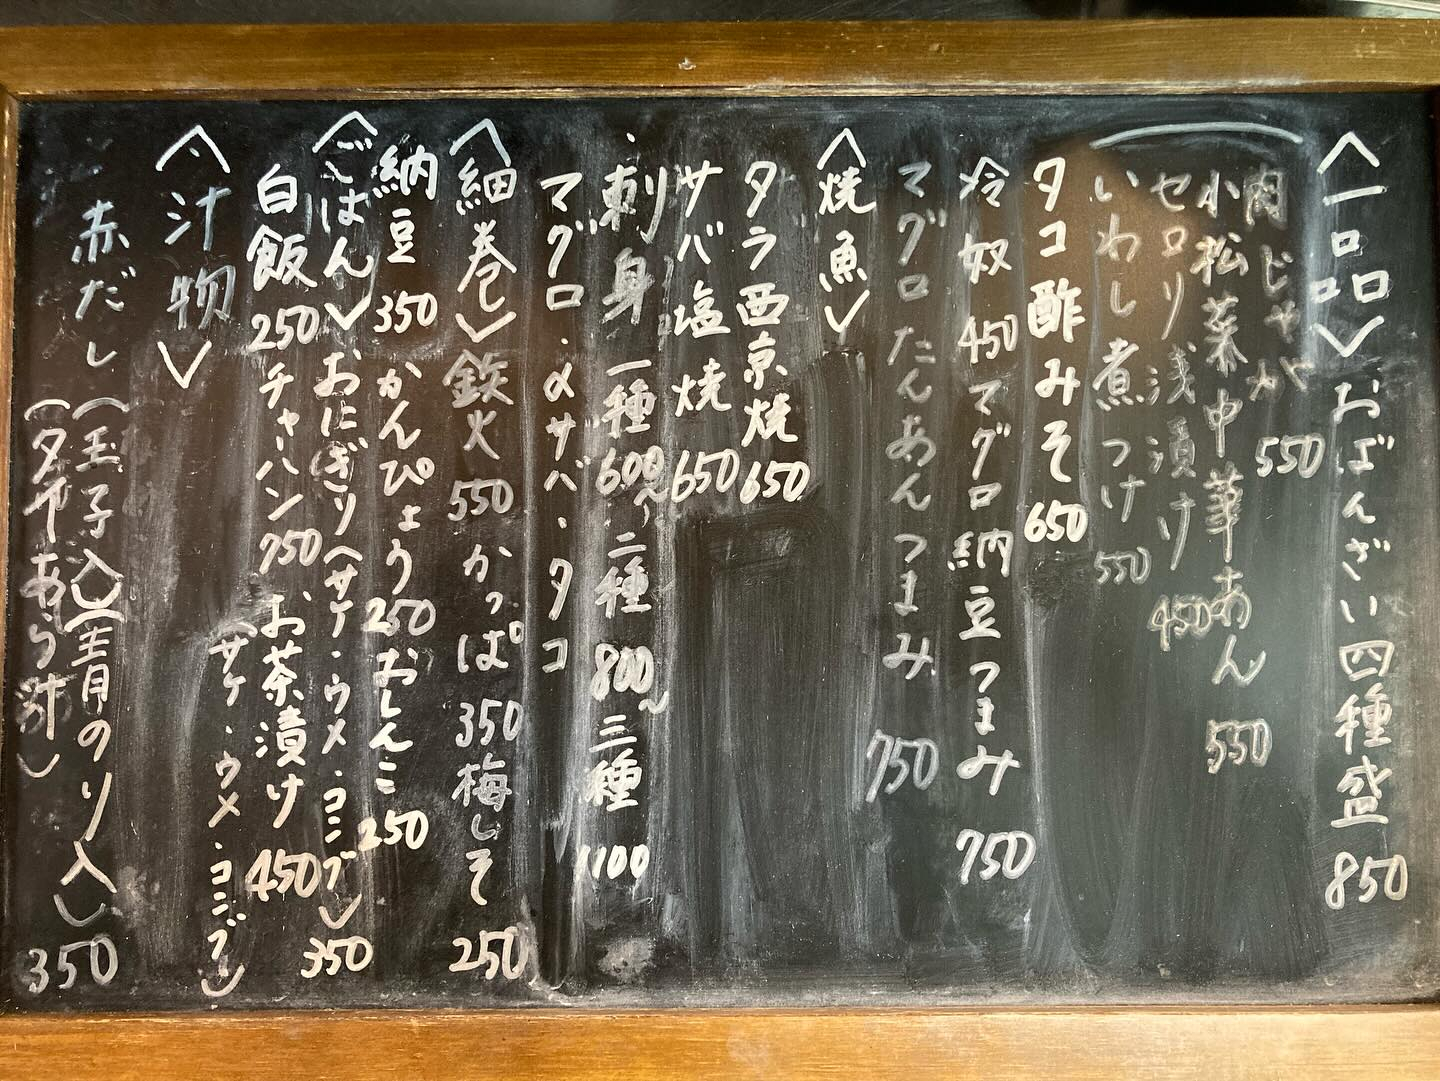 〈一品〉おばんざい四種盛 850
肉じゃが 550
小松菜中華あん 550
セロリ浅漬け 450
いわし煮つけ 550
タコ酢みそ 650
冷奴 450 マグロ納豆つまみ 750
マグロたんあんつまみ 750
〈焼魚〉
タラ西京焼 650
サバ塩焼 650
刺身 一種 600〜 二種 800〜 三種 1100
マグロ・〆サバ・タコ
〈細巻〉鉄火 550 かっぱ 350 梅しそ 250
納豆 350 かんぴょう 250 おしんこ 250
〈ごはん〉おにぎり(サケ・ウメ・コンブ) 350
白飯 250 チャーハン 750 お茶漬け 450
(サケ・ウメ・コンブ)
〈汁物〉
赤だし (玉子入) (青のり入) 350
(タヤあら汁)